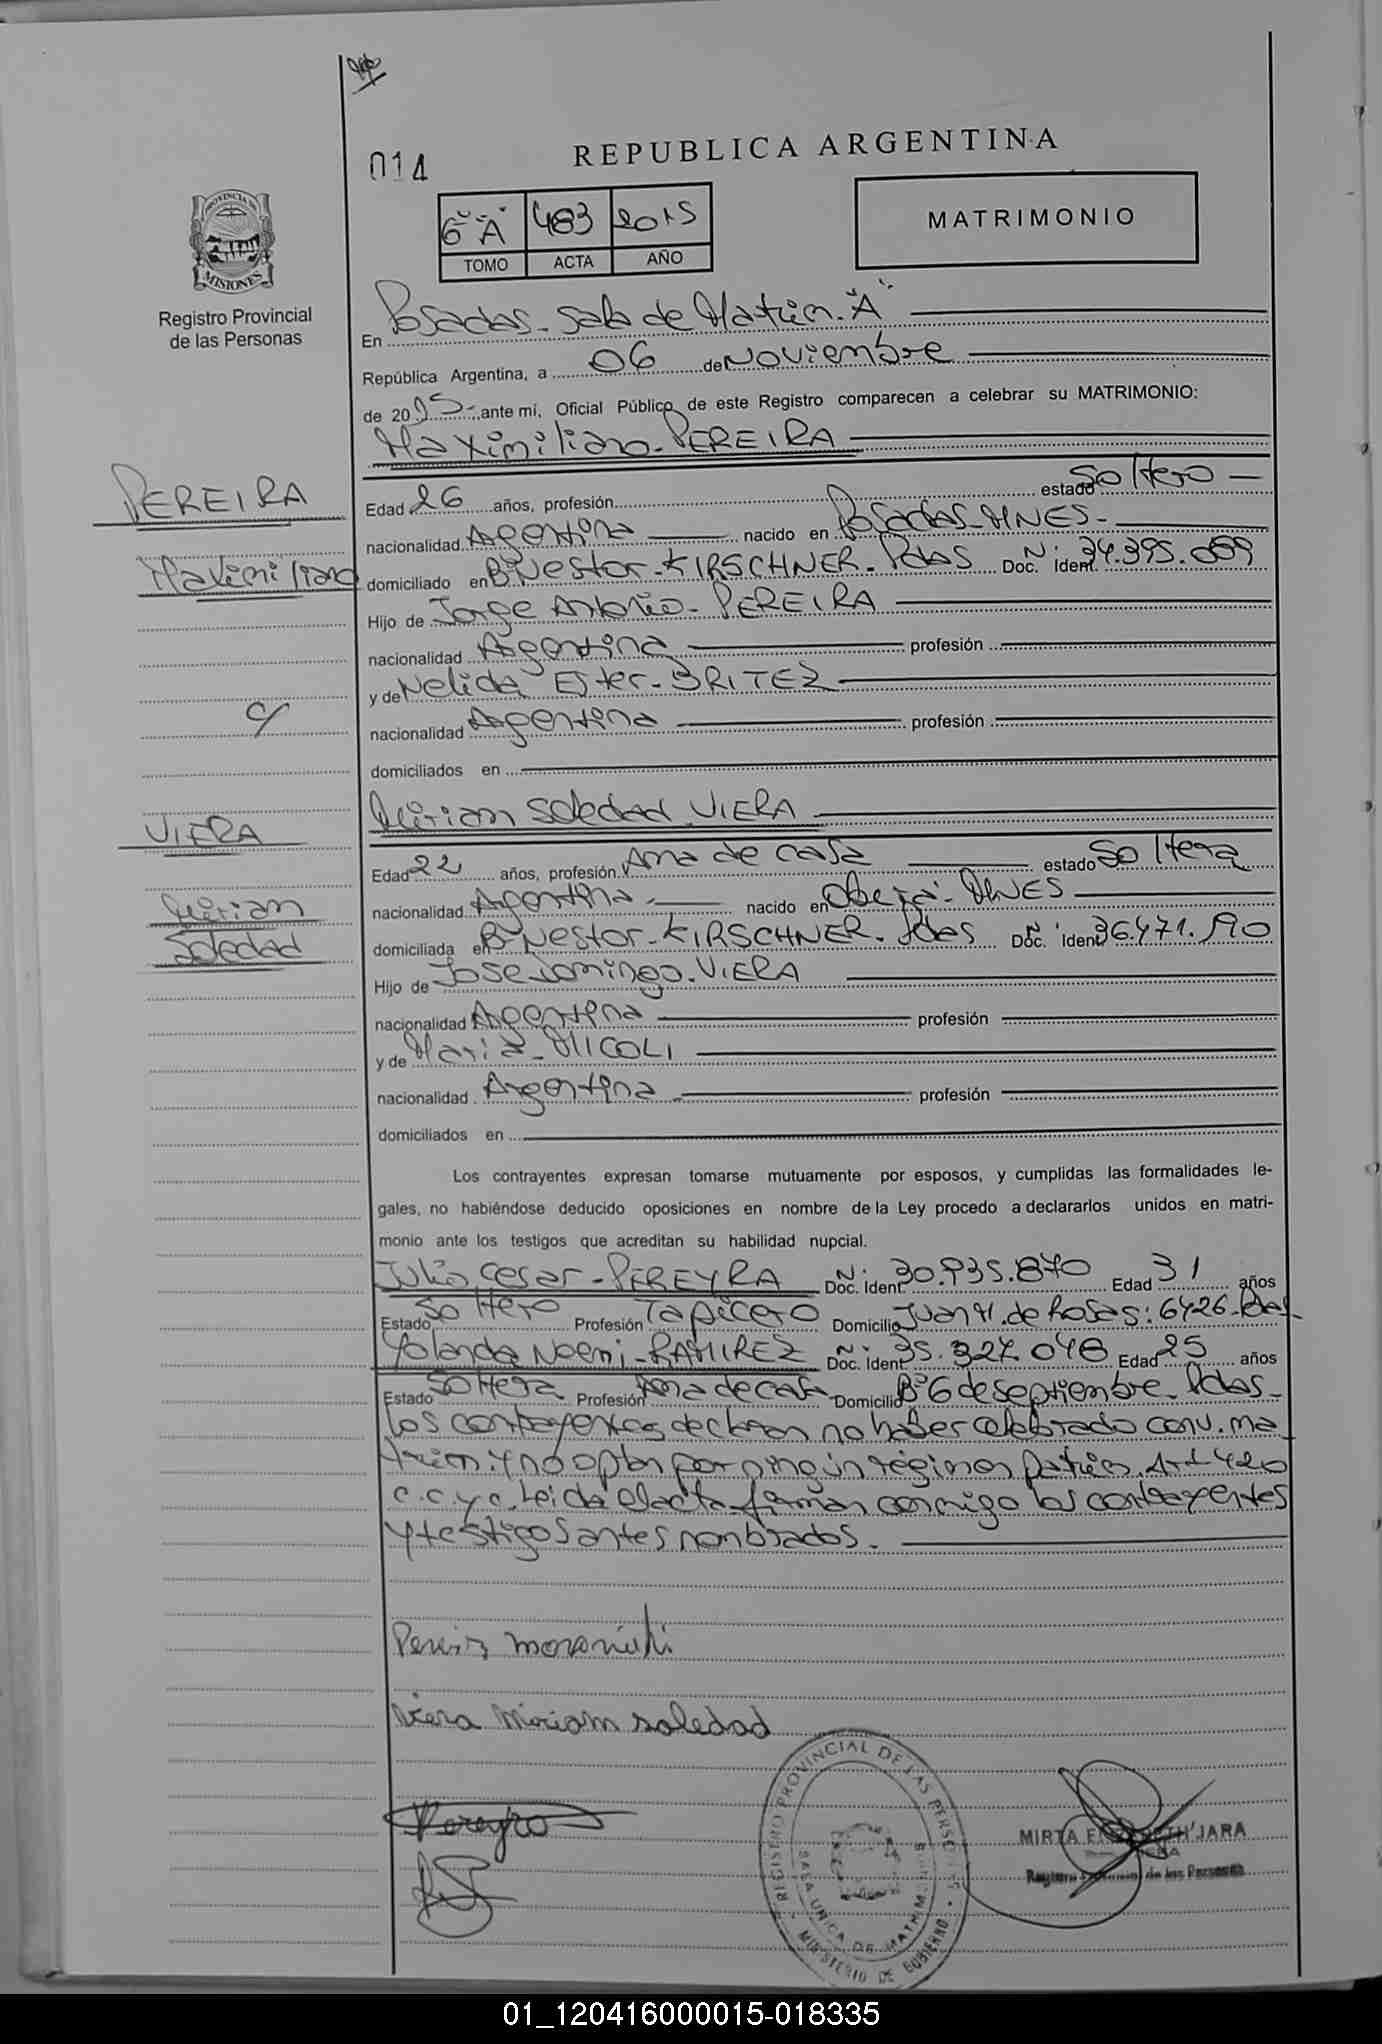 014
REPUBLICA ARGENTINA
6º "A" 483 2015
TOMO ACTA AÑO
MATRIMONIO
PROVINCIA DE
MISIONES
Registro Provincial
de las Personas
En Posadas - Sala de Matrim. "A"
República Argentina, a 06 de Noviembre
de 2015 - ante mí, Oficial Público de este Registro comparecen a celebrar su MATRIMONIO:
Maximiliano - PEREIRA
PEREIRA
Maximiliano
c/
VIERA
Miriam
Soledad
Edad 26 años, profesión estado Soltero
nacionalidad Argentina nacido en Posadas - MNES -
domiciliado en Bº Nestor - KIRSCHNER - Pdas Doc. Ident. Nº 34.395.
Hijo de Jorge Antonio - PEREIRA
nacionalidad Argentina profesión
y de Nelida Ester - BRITEZ
nacionalidad Argentina profesión
domiciliados en
Miriam Soledad VIERA
Edad 22 años, profesión Ama de casa estado Soltera
nacionalidad Argentina - nacido en Oberá - MNES
domiciliada en Bº Nestor - KIRSCHNER - Pdas Doc. Ident. Nº 36.471.190
Hijo de Jose Domingo - VIERA
nacionalidad Argentina profesión
y de Maria - MICOLI
nacionalidad Argentina profesión
domiciliados en
Los contrayentes expresan tomarse mutuamente por esposos, y cumplidas las formalidades le-
gales, no habiéndose deducido oposiciones en nombre de la Ley procedo a declararlos unidos en matri-
monio ante los testigos que acreditan su habilidad nupcial.
Julio Cesar - PEREYRA Doc. Ident. Nº 30.935.870 Edad 31 años
Estado Soltero Profesión Tapicero Domicilio Juan M. de Rosas: 6426 - Pdas -
Yolanda Noemi - RAMIREZ Doc. Ident. Nº 35.327.048 Edad 25 años
Estado Soltera Profesión Ama de casa Domicilio Bº 6 de septiembre - Pdas -
los contrayentes declaran no haber celebrado conv. ma
trim. y no optan por ningún régimen patrim. Art 420
c.c.y c. Leida el acta firman conmigo los contrayentes
y testigos antes nombrados. -
Viera Miriam soledad
Pereyra
REGISTRO PROVINCIAL DE LAS PERSONAS
SALA UNICA DE MATRIM
MINISTERIO DE GOBIERNO
MIRTA JARA
de las Personas
01_120416000015-018335